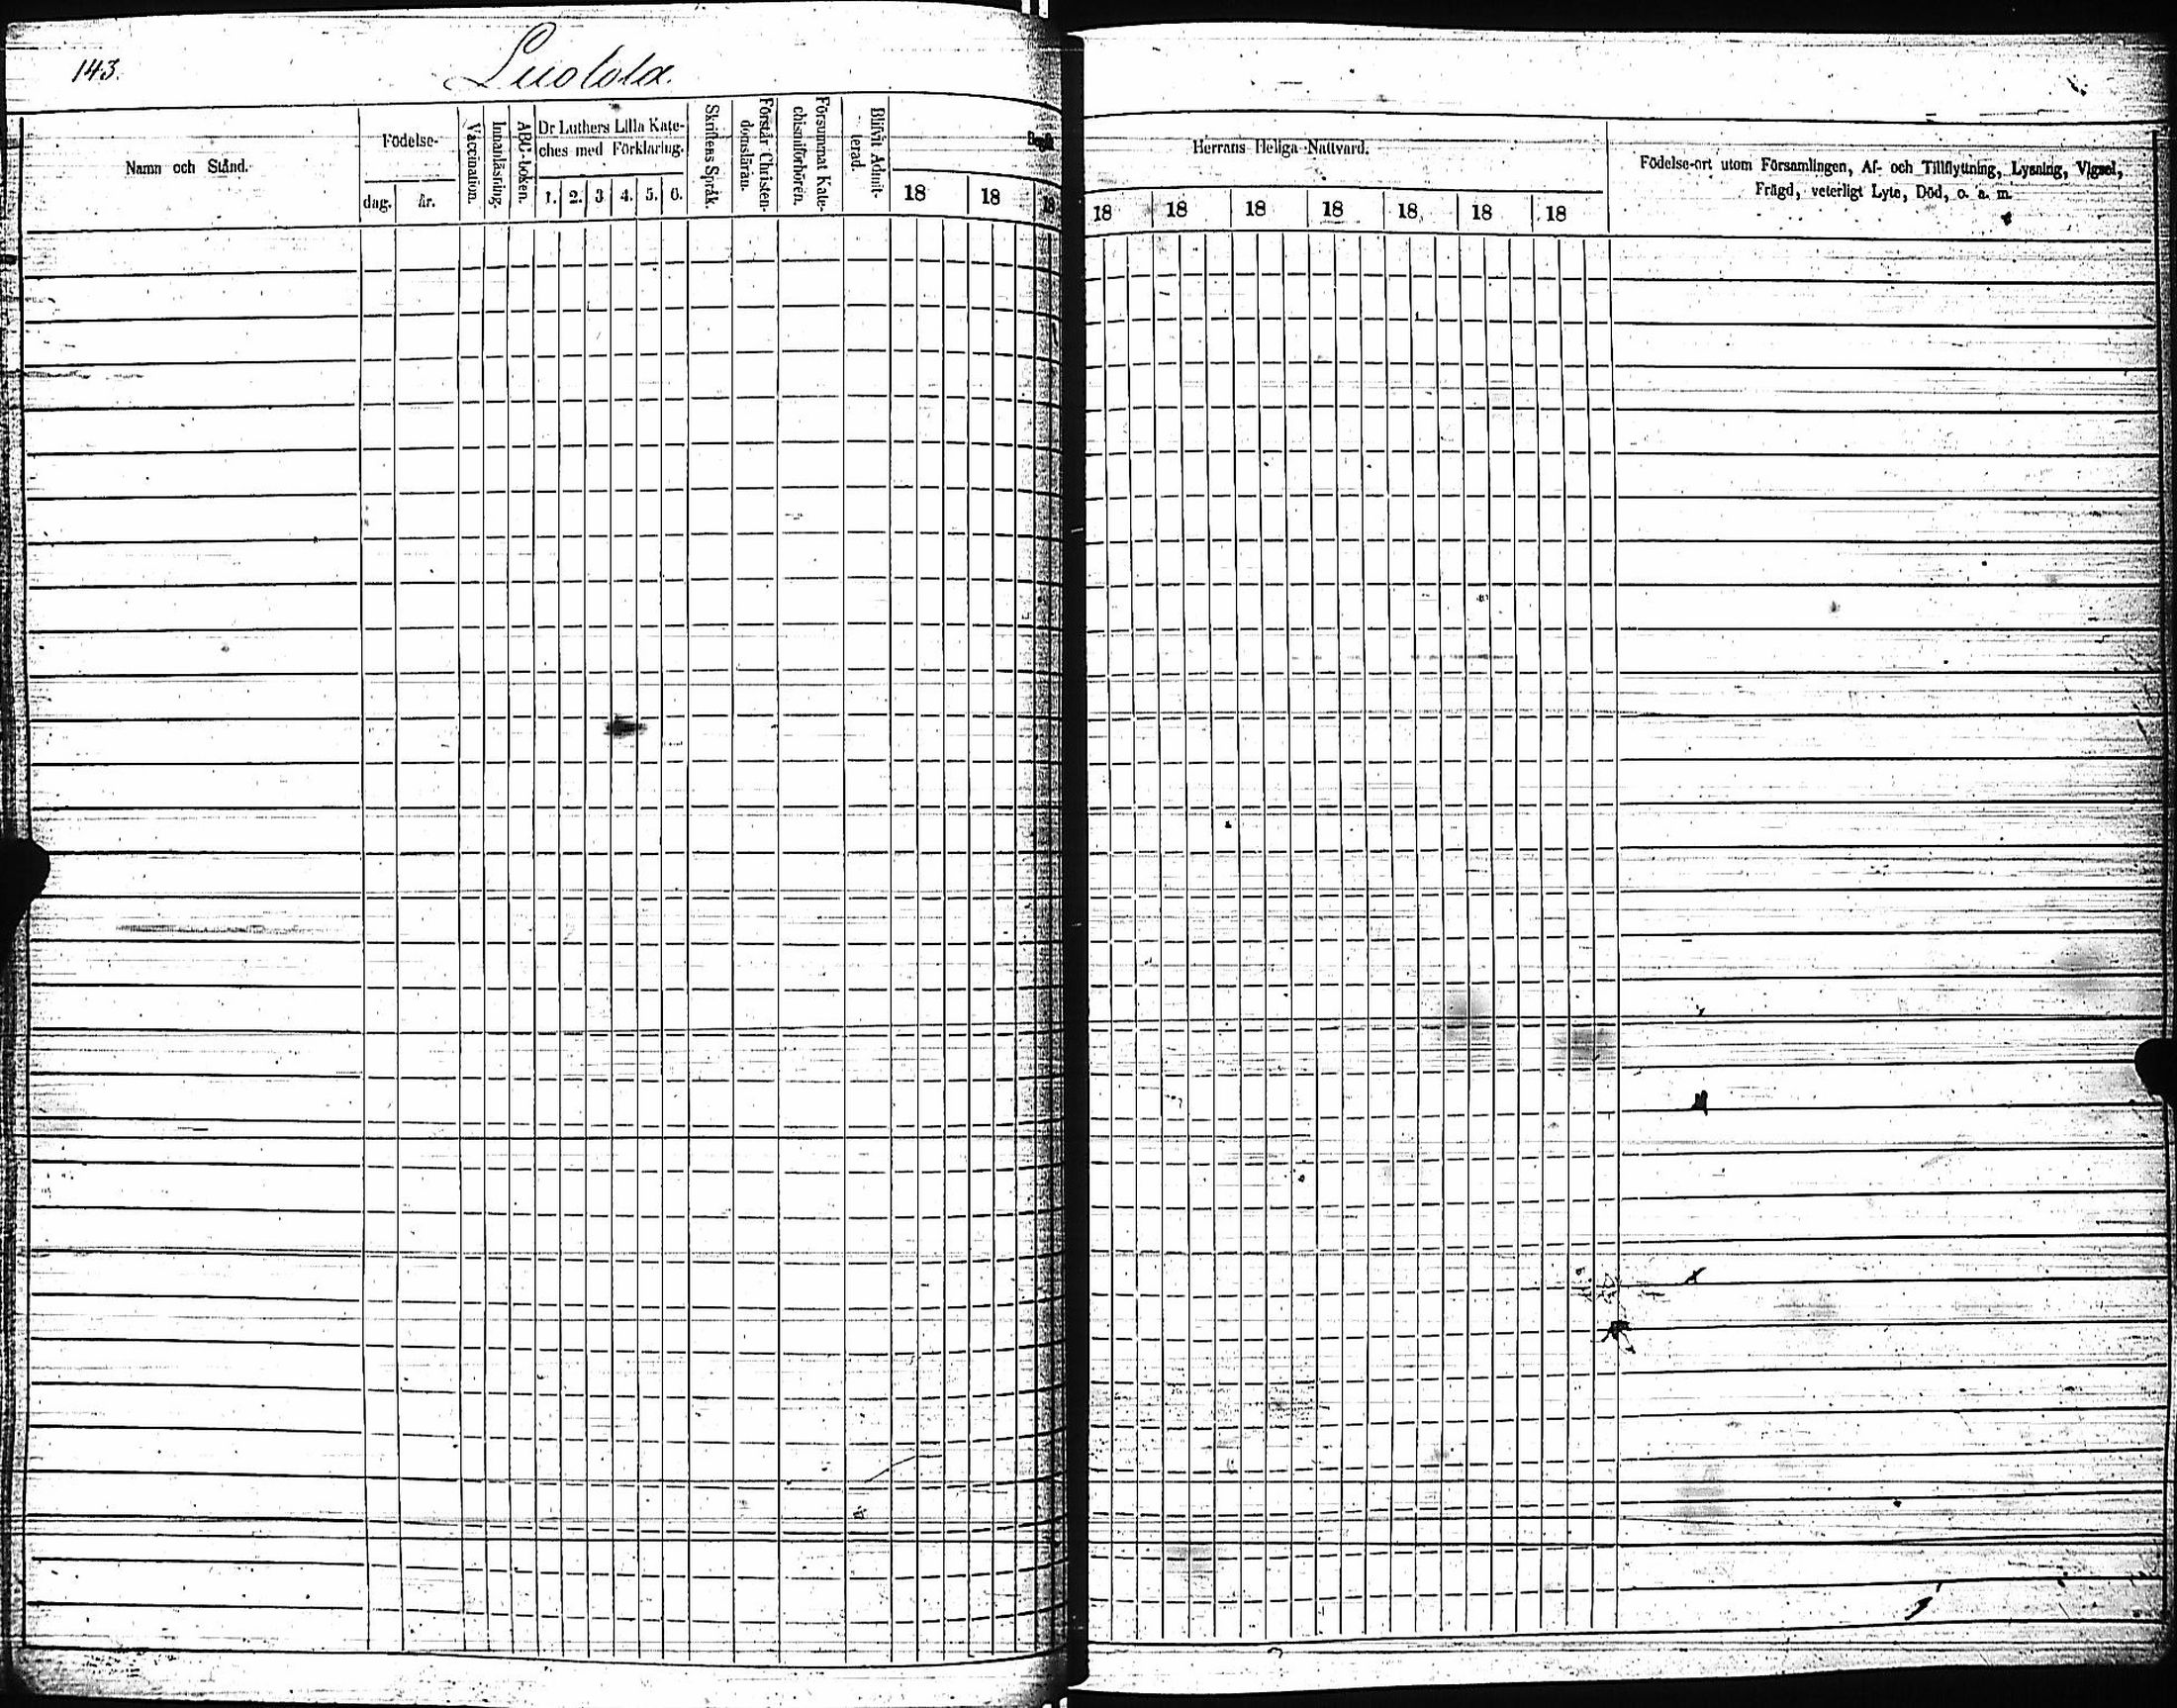 143.
Luotola.
Namn och Stånd.
Födelse-
dag.
år.
Vaccination.
Innanläsning.
ABC-boken.
Dr Luthers Lilla Kate-
ches med Förklaring.
1. 2. 3 4. 5. 6.
Skriftens Språk.
Förstår Christen-
domsläran.
Försummat Kate-
chismiförhören.
Blifvit Admit-
terad.
18 18 18
Herrans Heliga Nattvard.
18 18 18 18 18 18 18
Födelse-ort utom Församlingen, Af- och Tillflyttning, Lysning, Vigsel,
Frägd, veterligt Lyte, Död, o. a. m.